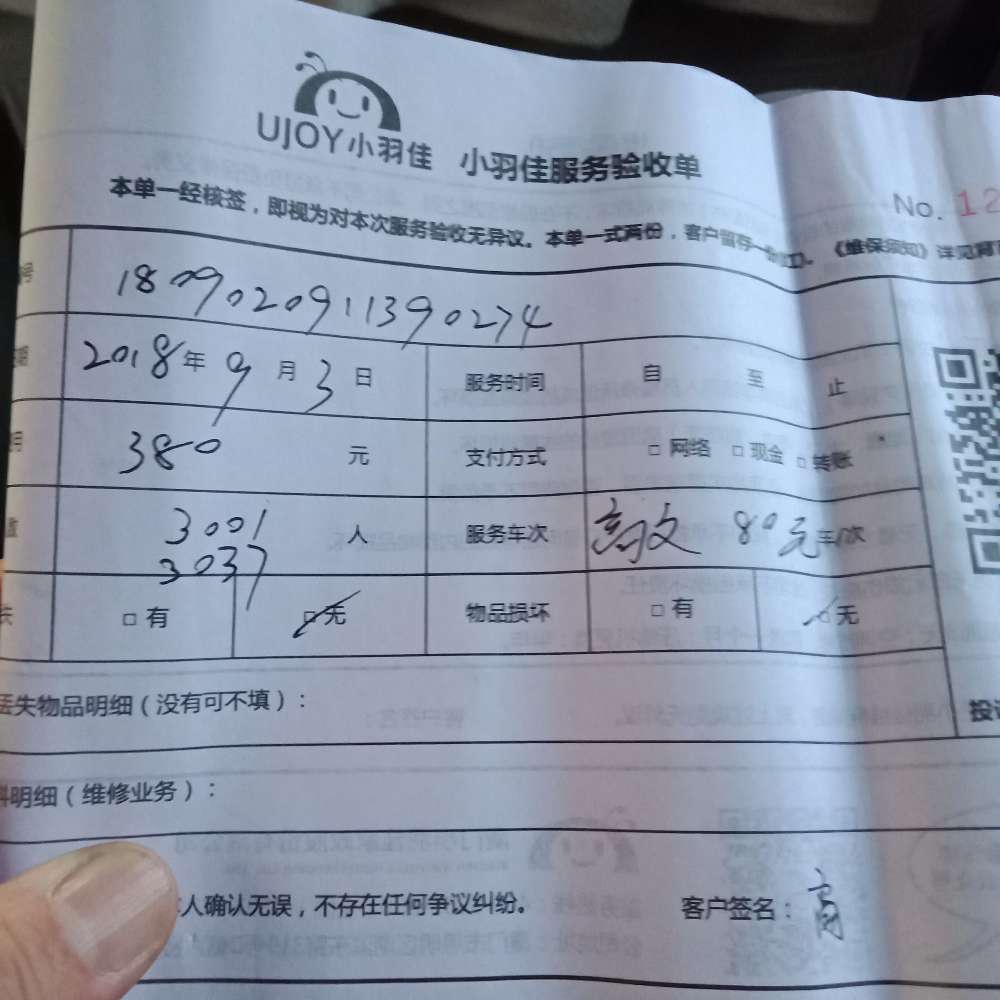 UJOY小羽佳 小羽佳服务验收单
No. 12
本单一经核签，即视为对本次服务验收无异议。本单一式两份，客户留存一份。《维保须知》详见背
号 1809020911390274
期 2018年9月3日 服务时间 自 至 止
用 380 元 支付方式 □网络 □现金 □转账
数 3001 人 服务车次 80元 车/次
3037
□有 □无 物品损坏 □有 □无
丢失物品明细（没有可不填）：
投
料明细（维修业务）：
人确认无误，不存在任何争议纠纷。 客户签名：